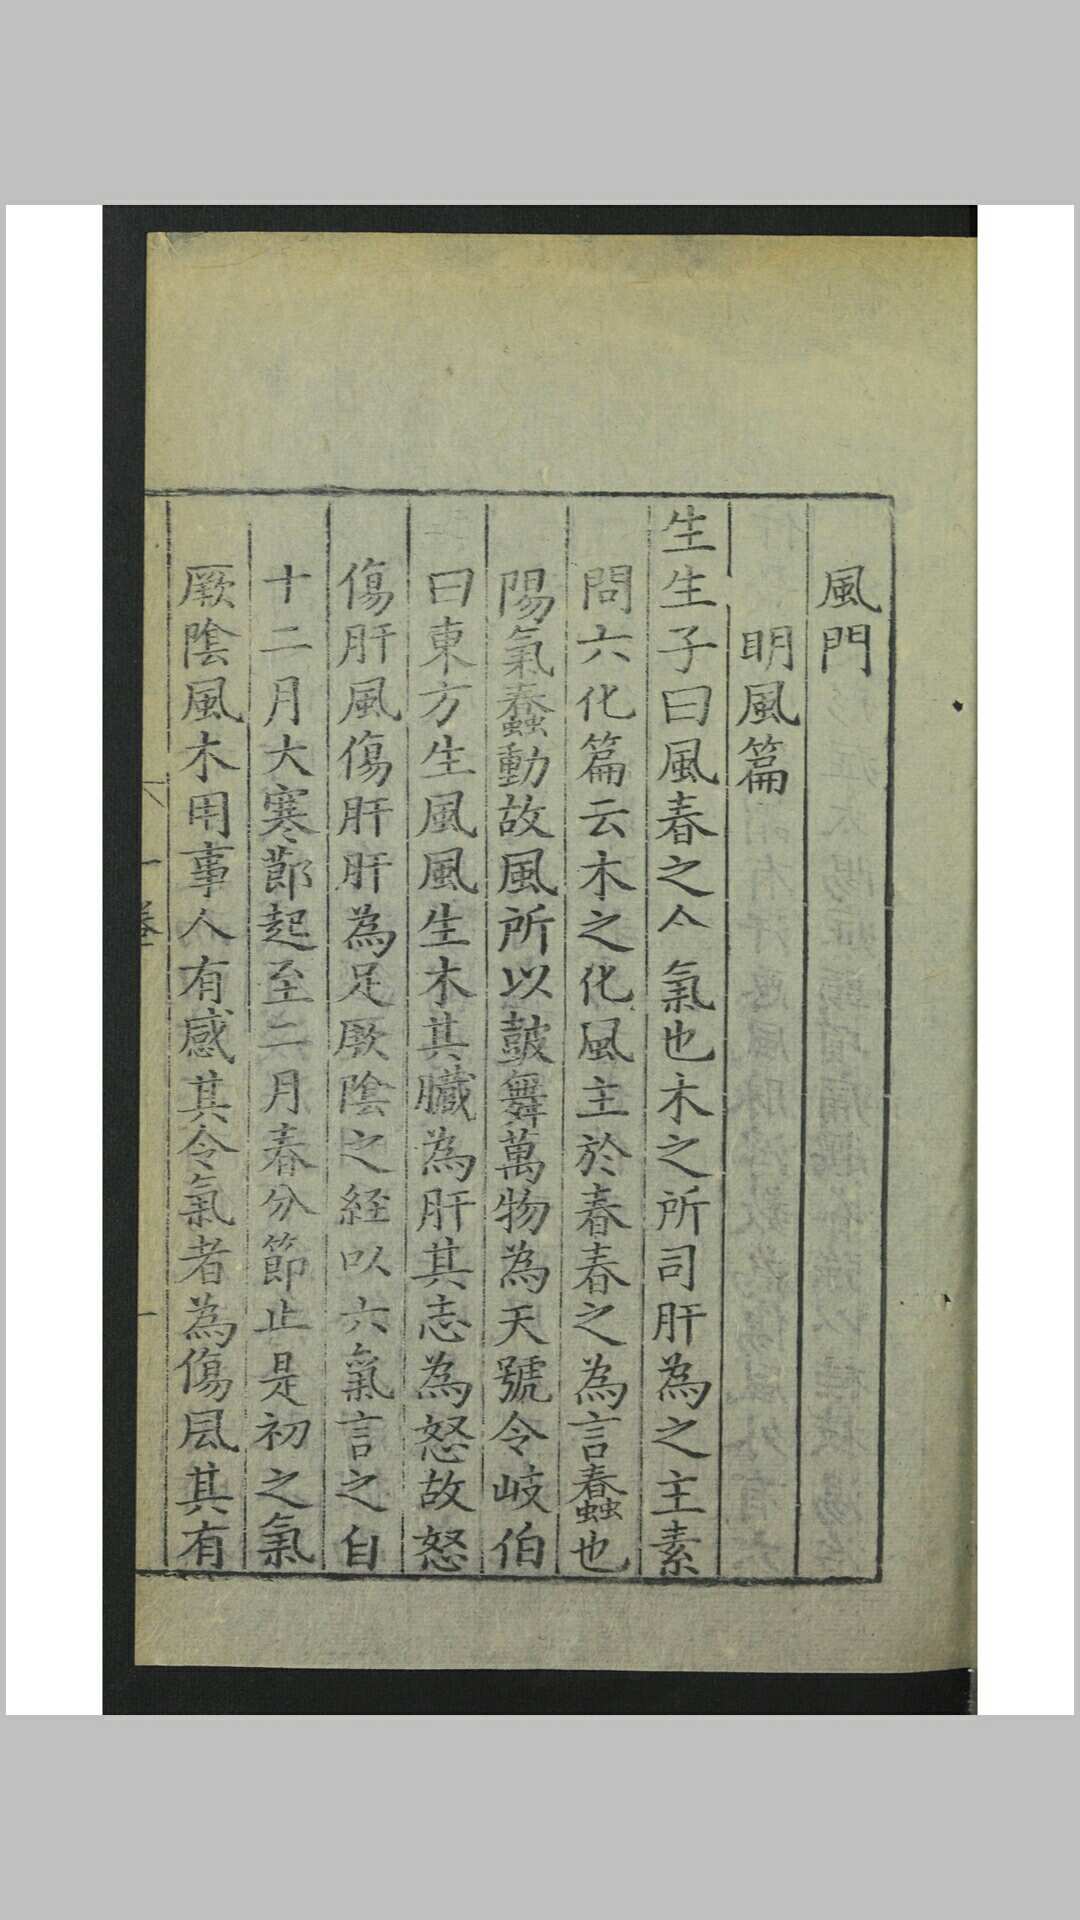 風門
明風篇
生生子曰風春之令氣也木之所司肝為之主素
問六化篇云木之化風主於春春之為言蠢也
陽氣蠢動故風所以鼓舞萬物為天號令岐伯
曰東方生風風生木其臟為肝其志為怒故怒
傷肝風傷肝肝為足厥陰之經以六氣言之自
十二月大寒節起至二月春分節止是初之氣
厥陰風木用事人有感其令氣者為傷風其有